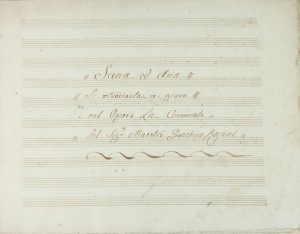 " Scena ed Aria "
" Se ritrovarla io giuro "
" nell Opera La Cenerentola "
" Del Sigr Maestro Gioachino Rossini "